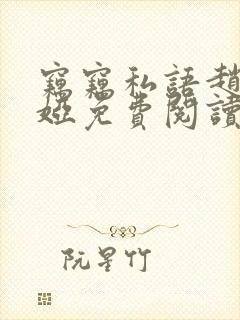 竊竊私語趙
婭免費閱讀
阮星竹